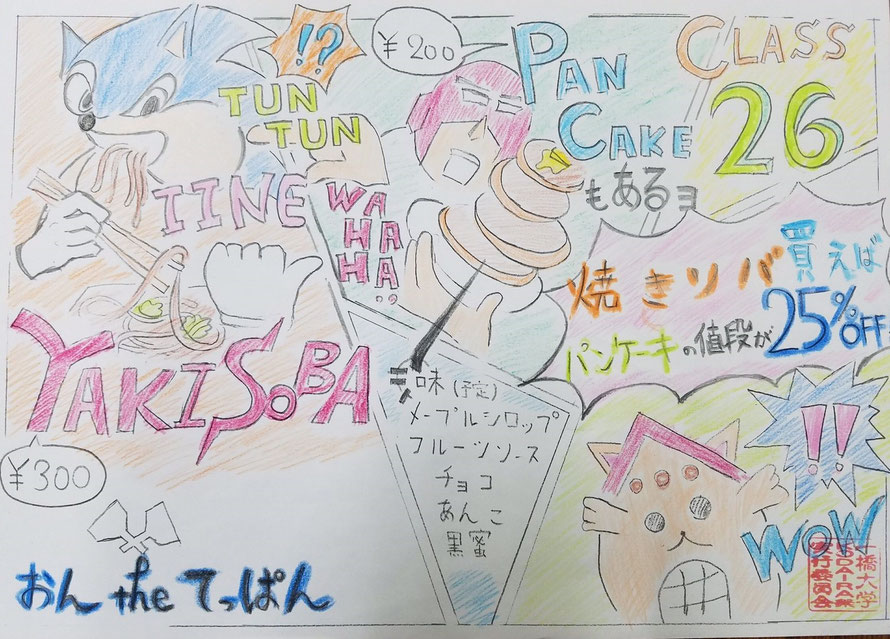 !?
TUN
TUN
IINE
YAKISOBA
¥300
おん the てっぱん
¥200
PAN
CAKE
もあるョ
WAHAHA
CLASS
26
焼きソバ買えば
パンケーキの値段が25%OFF
味(予定)
メープルシロップ
フルーツソース
チョコ
あんこ
黒蜜
!!
WOW
一橋大学
KODAIRA祭
実行委員会